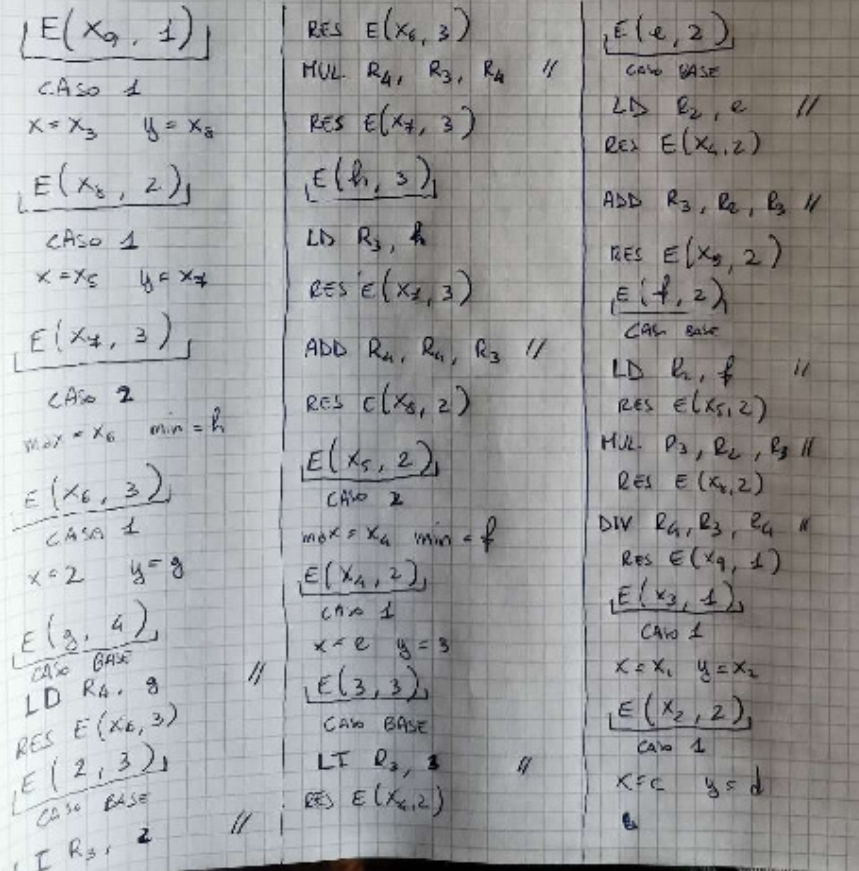 E(X9, 1)
CASO 1
X = X3 y = X8
E(X8, 2)
CASO 1
X = X5 y = X7
E(X7, 3)
CASO 2
max = X6 min = h
E(X6, 3)
CASO 1
X = 2 y = g
E(g, 4)
CASO BASE
LD R4, g //
RES E(X6, 3)
E(2, 3)
CASO BASE
LI R3, 2 //
RES E(X6, 3)
MUL R4, R3, R4 //
RES E(X7, 3)
E(h, 3)
LD R3, h
RES E(X7, 3)
ADD R4, R4, R3 //
RES E(X8, 2)
E(X5, 2)
CASO 2
max = X4 min = f
E(X4, 2)
CASO 1
X = e y = 3
E(3, 3)
CASO BASE
LI R3, 3 //
RES E(X4, 2)
E(e, 2)
CASO BASE
LD R2, e //
RES E(X4, 2)
ADD R3, R2, R3 //
RES E(X5, 2)
E(f, 2)
CASO BASE
LD R2, f //
RES E(X5, 2)
MUL R3, R2, R3 //
RES E(X8, 2)
DIV R4, R3, R4 //
RES E(X9, 1)
E(X3, 1)
CASO 1
X = X1 y = X2
E(X2, 2)
CASO 1
X = c y = d